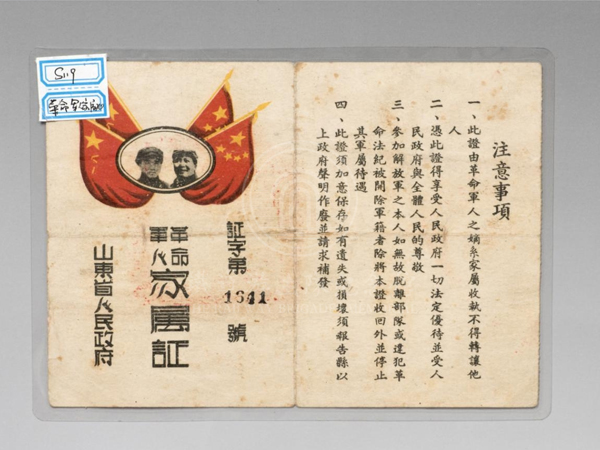 S119
注意事項
一、此證由革命軍人之嫡系家屬收執不得轉讓他
人
二、憑此證得享受人民政府一切法定優待並受人
民政府與全體人民的尊敬
三、參加解放軍之本人如無故脫離部隊或違犯革
命法紀被開除軍籍者除將本證收回外並停止
其軍屬待遇
四、此證須加意保存如有遺失或損壞須報告縣以
上政府聲明作廢並請求補發
証字第1641號
革命
軍人
家屬証
山東省人民政府